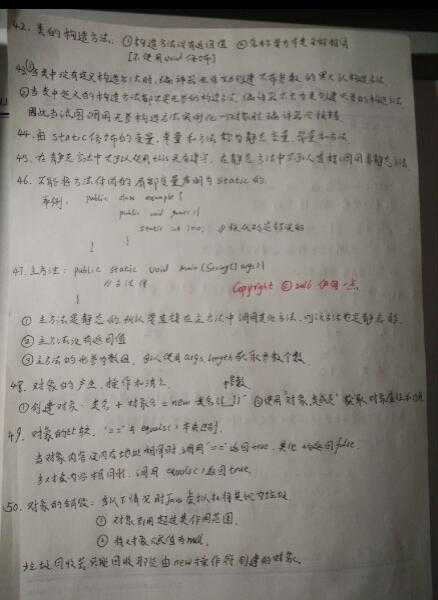 42. 类的构造方法. ①构造方法没有返回值 ②名称要与本类名称相同
[不使用void修饰]
43. ①当类中没有定义构造方法时, 编译器会自动创建一个不带参数的默认构造方法
②当类中定义的构造方法都不是无参的构造方法, 编译器不会为类创建
因此当试图调用无参构造方法实例化一个对象时编译器会报错
44. 由static修饰的变量、常量和方法称为静态变量、常量和方法
45. 在静态方法中不可以使用this关键字. 在静态方法中不可以直接调用非静态方法.
46. 不能将方法体内的局部变量声明为static的.
示例: public class example {
public void
static int i=0; //
}
}
47. 主方法: public static void main(String[] args){
//方法体
}
Copyright © 2016 伊
① 主方法是静态的, 所以要直接在主方法中调用其他方法, 则该方法也是静态的.
② 主方法没有返回值
③ 主方法的形参为数组, 可以使用args.length获取参数个数
48. 对象的产生、操作和消亡.
参数
①创建对象: 类名 + 对象名 = new 类名( ) ②使用"对象.类成员"获取对象属性和
49. 对象的比较. "==" 与 equals()
当对象内容及内存地址相同时, 调用"=="返回true, 其他 返回false.
当对象内容相同时, 调用equals()返回true.
50. 对象的销毁: 当以下情况时Java虚拟机将其视为垃圾
① 对象引用超过其作用范围.
② 将对象赋值为null.
垃圾回收器只能回收那些由new操作符创建的对象.